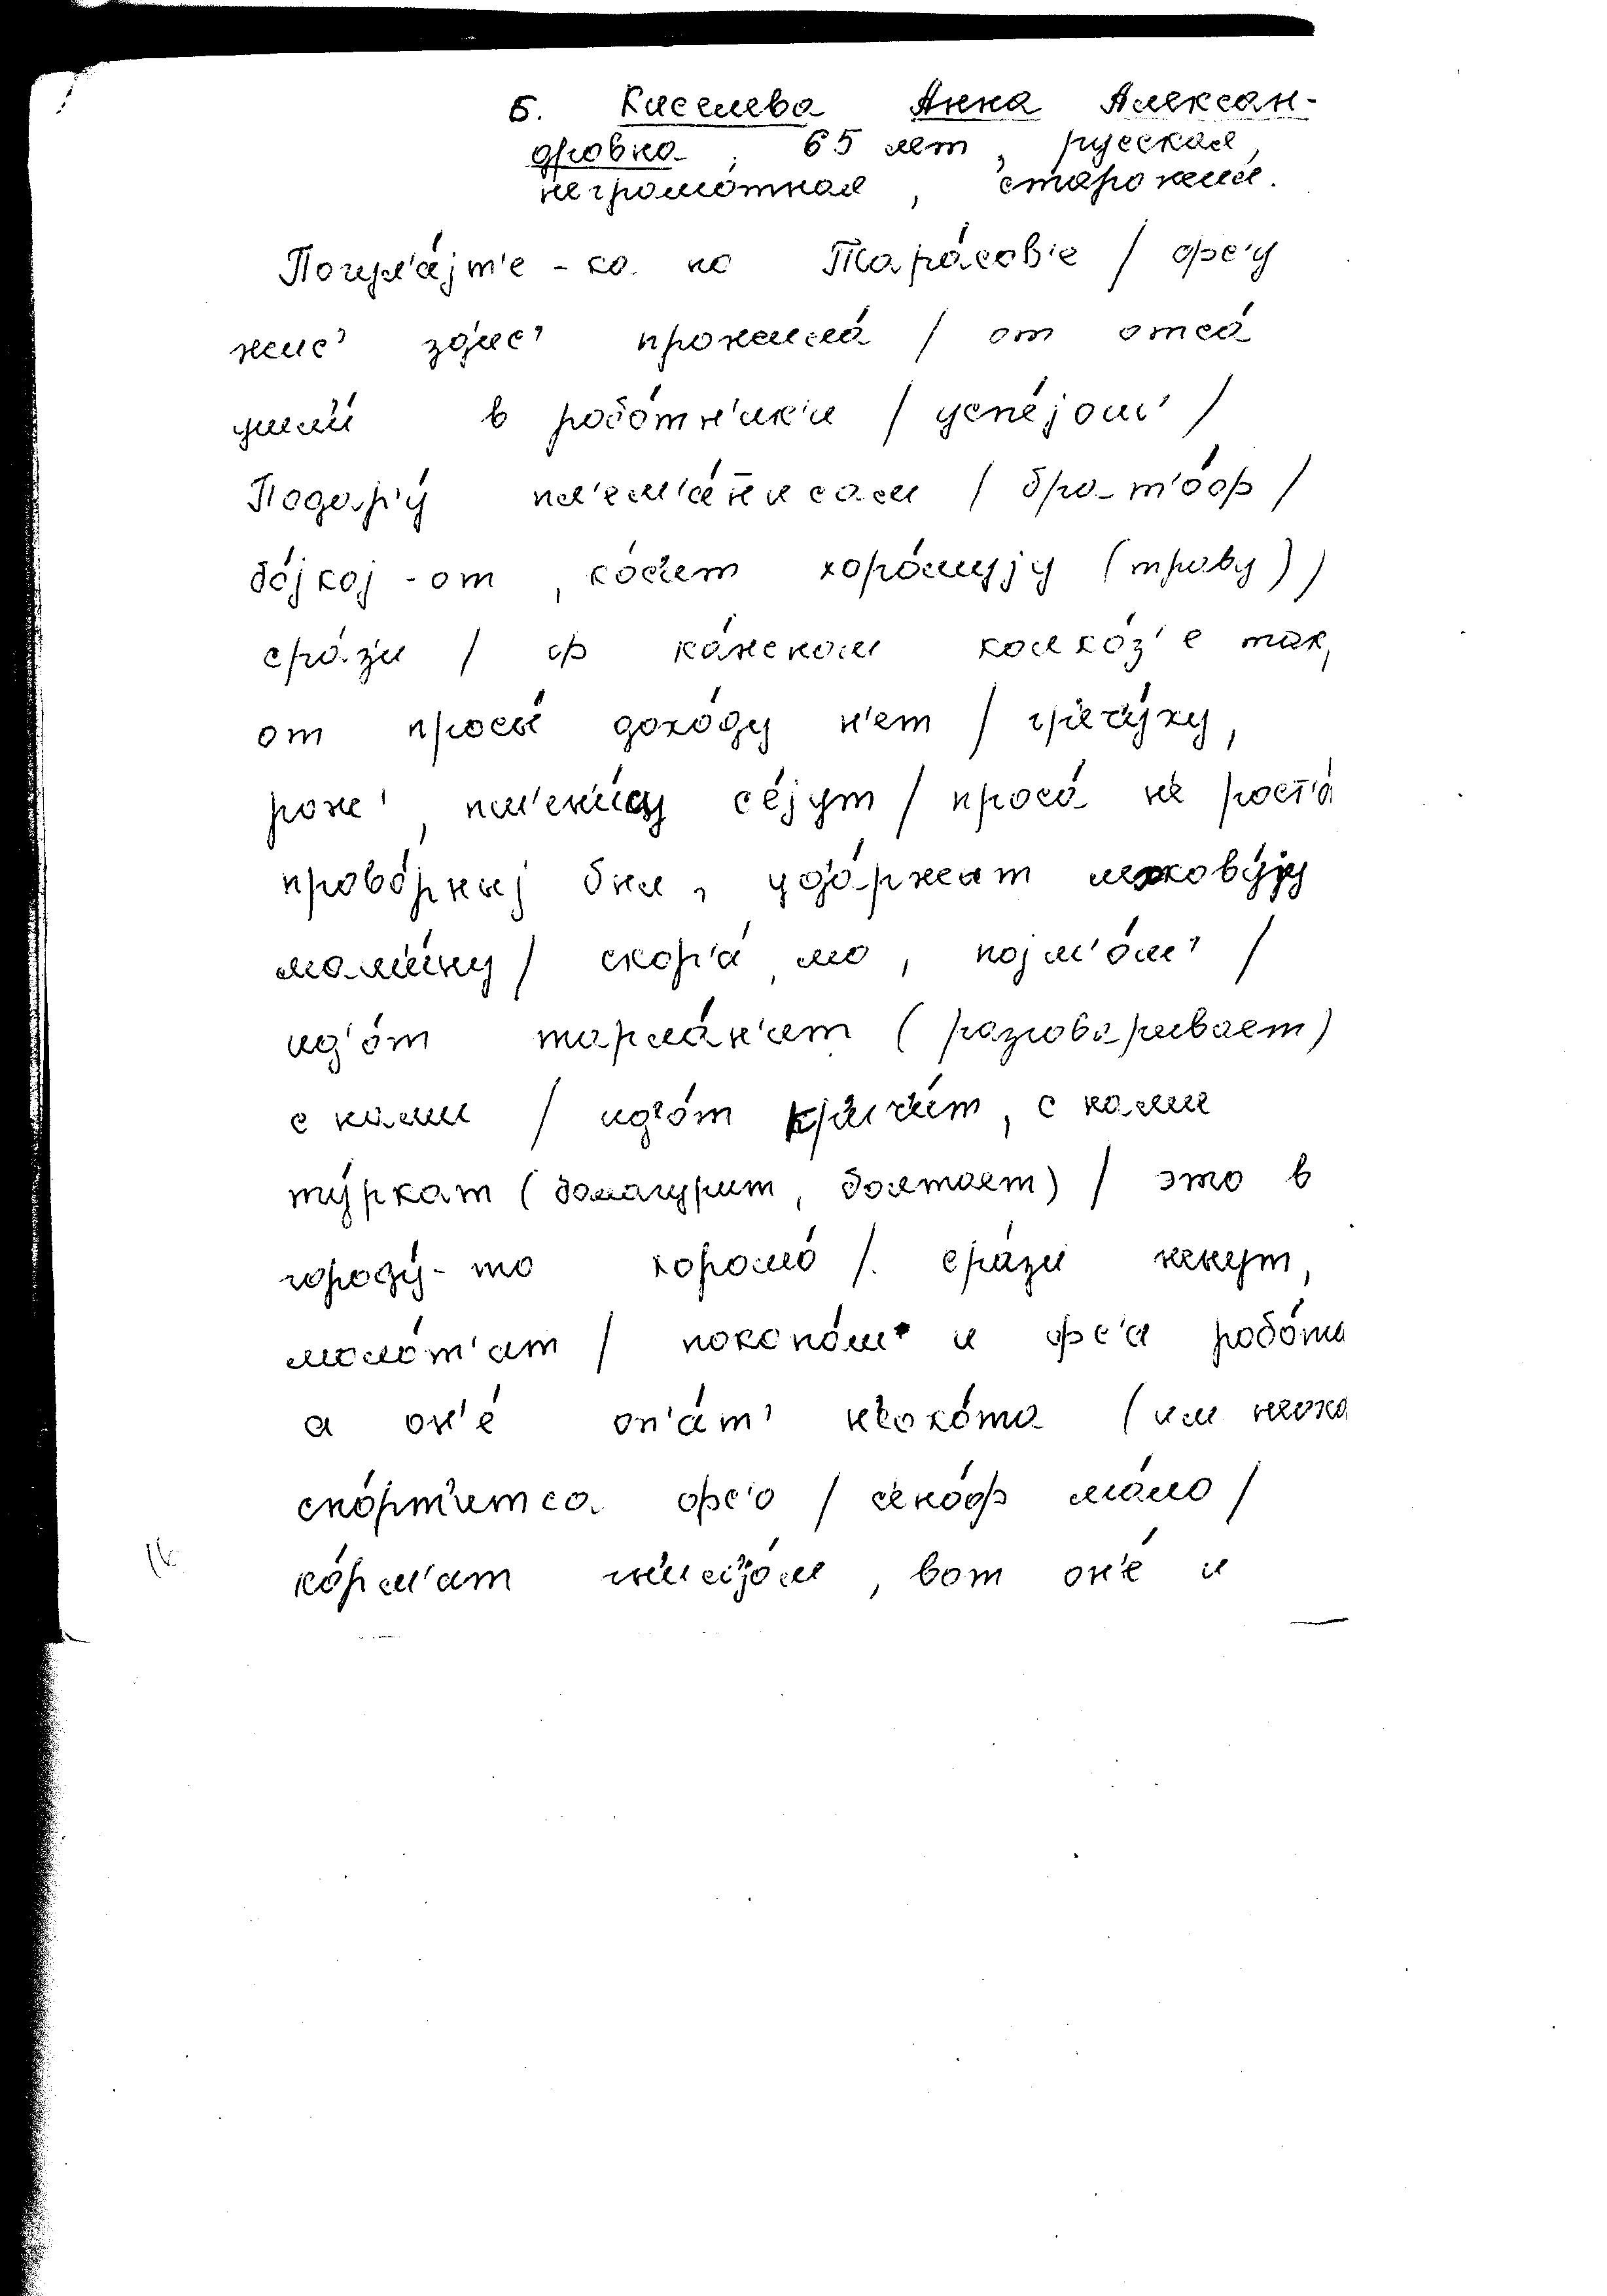 Б. Киселева Анна Алексан-
дровна, 65 лет, русская,
неграмотная, старожил.
Погул'а́јт'е-ка на Тара́сов'е / фс'у
жис' здис' прожила́ / от отса́
ушли́ в робо́тн'ик'и / успе́још' /
Подар'у́ пл'ем'а́н̄исам / бра-т'о́оф /
бо́јкој-от, ко́с'ит хоро́шују (траву))
сра́з'и / ф ка́жном колхо́з'е так,
от просы́ дохо́ду н'ет / гр'еч'у́ху,
рож', пш'ени́цу се́јут / проса́ н'е рост'о́
прово́рныј был, уда́ржыт легкову́ју
маши́ну / скор'а́, мо, појм'о́ш' /
ид'о́т тарма́н'ит (разговаривает)
с нами / ид'о́т кр'ич'и́т, с нами
ту́ркат (балагурит, болтает) / это в
городу́-то хорошо́ /. сра́зи жнут,
моло́т'ат / покопо́ш' и фс'а робо́та
а он'е́ оп'а́т' н'еохо́та (им неохо
спо́рт'итса фс'о / с'ено́оф ма́ло /
ко́рм'ат гн'ил'јо́м, вот он'е́ и
16